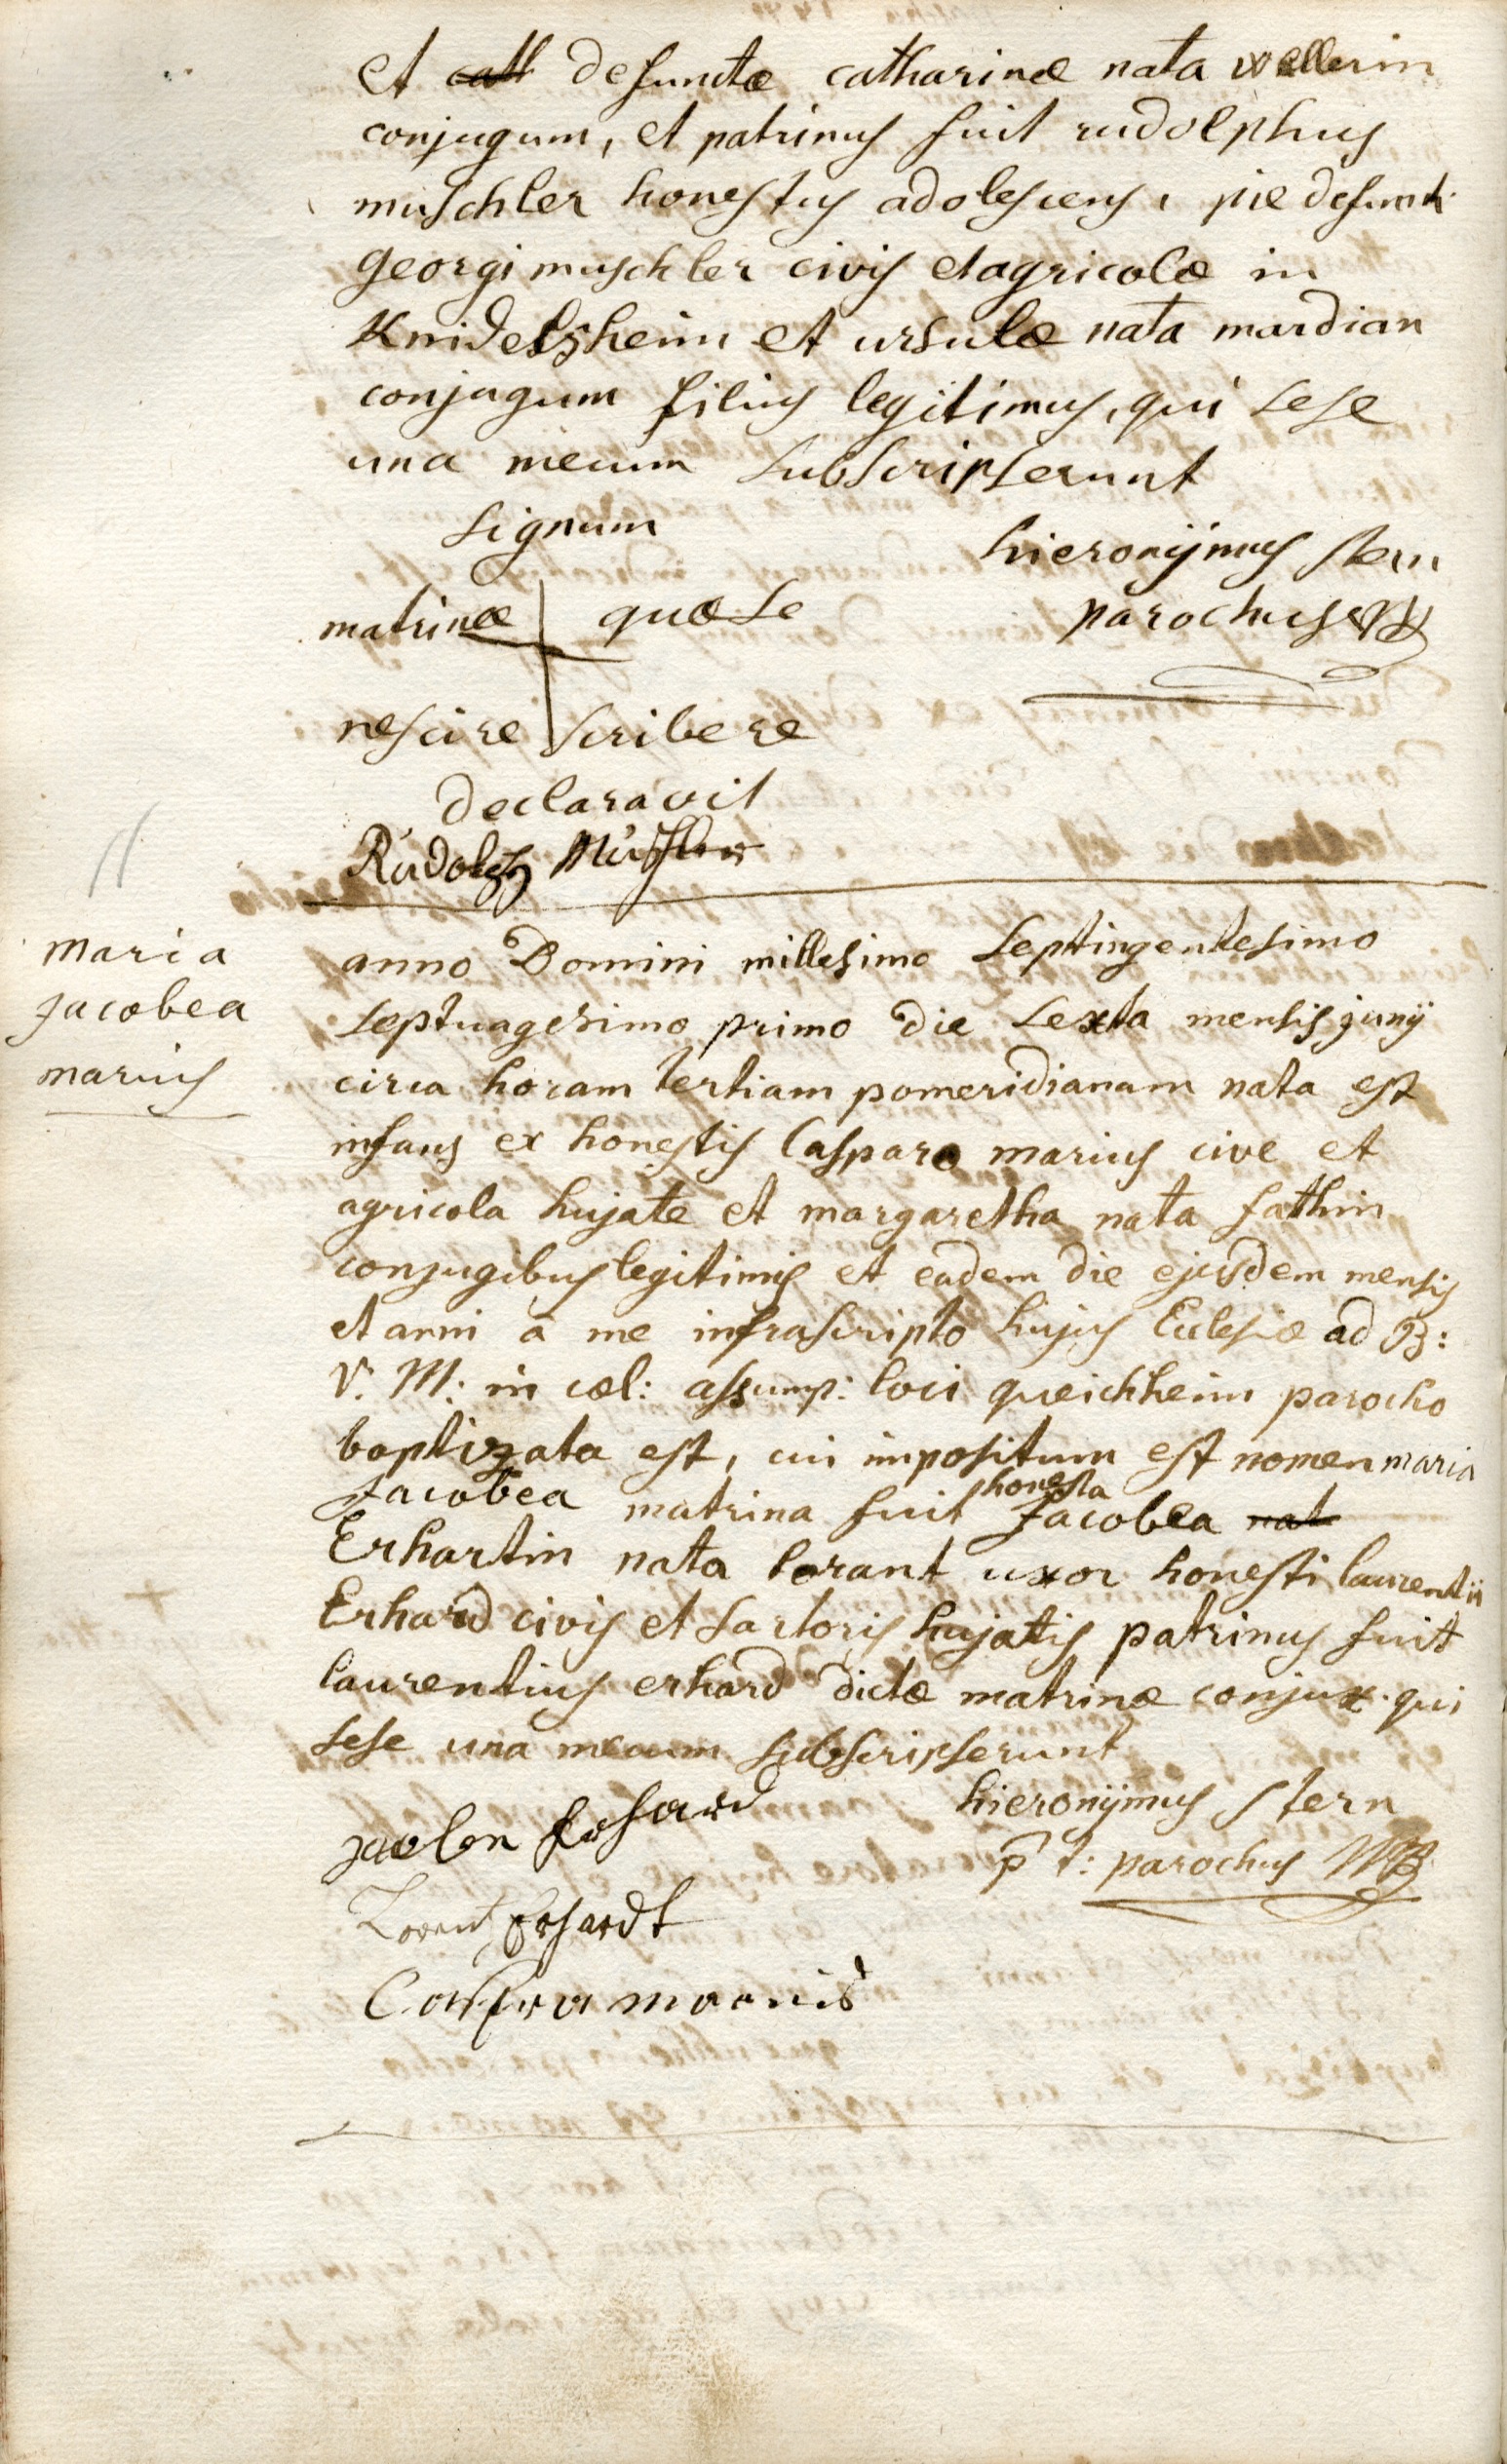 et cath defunctæ catharinæ nata wellerin
conjugum, et patrinus fuit rudolphus
muschler honestus adolescens, pie defuncti
georgi muschler civis et agricolæ in
Knidelsheim et ursulæ nata mardian
conjugum filius legitimus, qui sese
una mecum subscripserunt
signum
hieronijmus stern
matrinæ quæ se
parochus
nescire scribere
declaravit
Rudolph Muschler
maria
jacobea
marius
anno Domini millesimo septingentesimo
septuagesimo primo die sexta mensis junij
circa horam tertiam pomeridianam nata est
infans ex honestis Casparo marius cive et
agricola hujate et margaretha nata fathin
conjugibus legitimis et eadem die ejusdem mensis
et anni a me infrascripto hujus Eclesiæ ad B:
V. M: in cœl: assump: loci queichheim parocho
baptizata est, cui impositum est nomen maria
Jacobea matrina fuit honesta Jacobea nat
Erhartin nata lorant uxor honesti laurentii
Erhard civis et sartoris hujatis patrinus fuit
laurentius erhard dictæ matrinæ conjux. qui
sese una mecum subscripserunt
hieronijmus stern
Erhard
p t: parochus
Lorentz Erhardt
Caspar marius